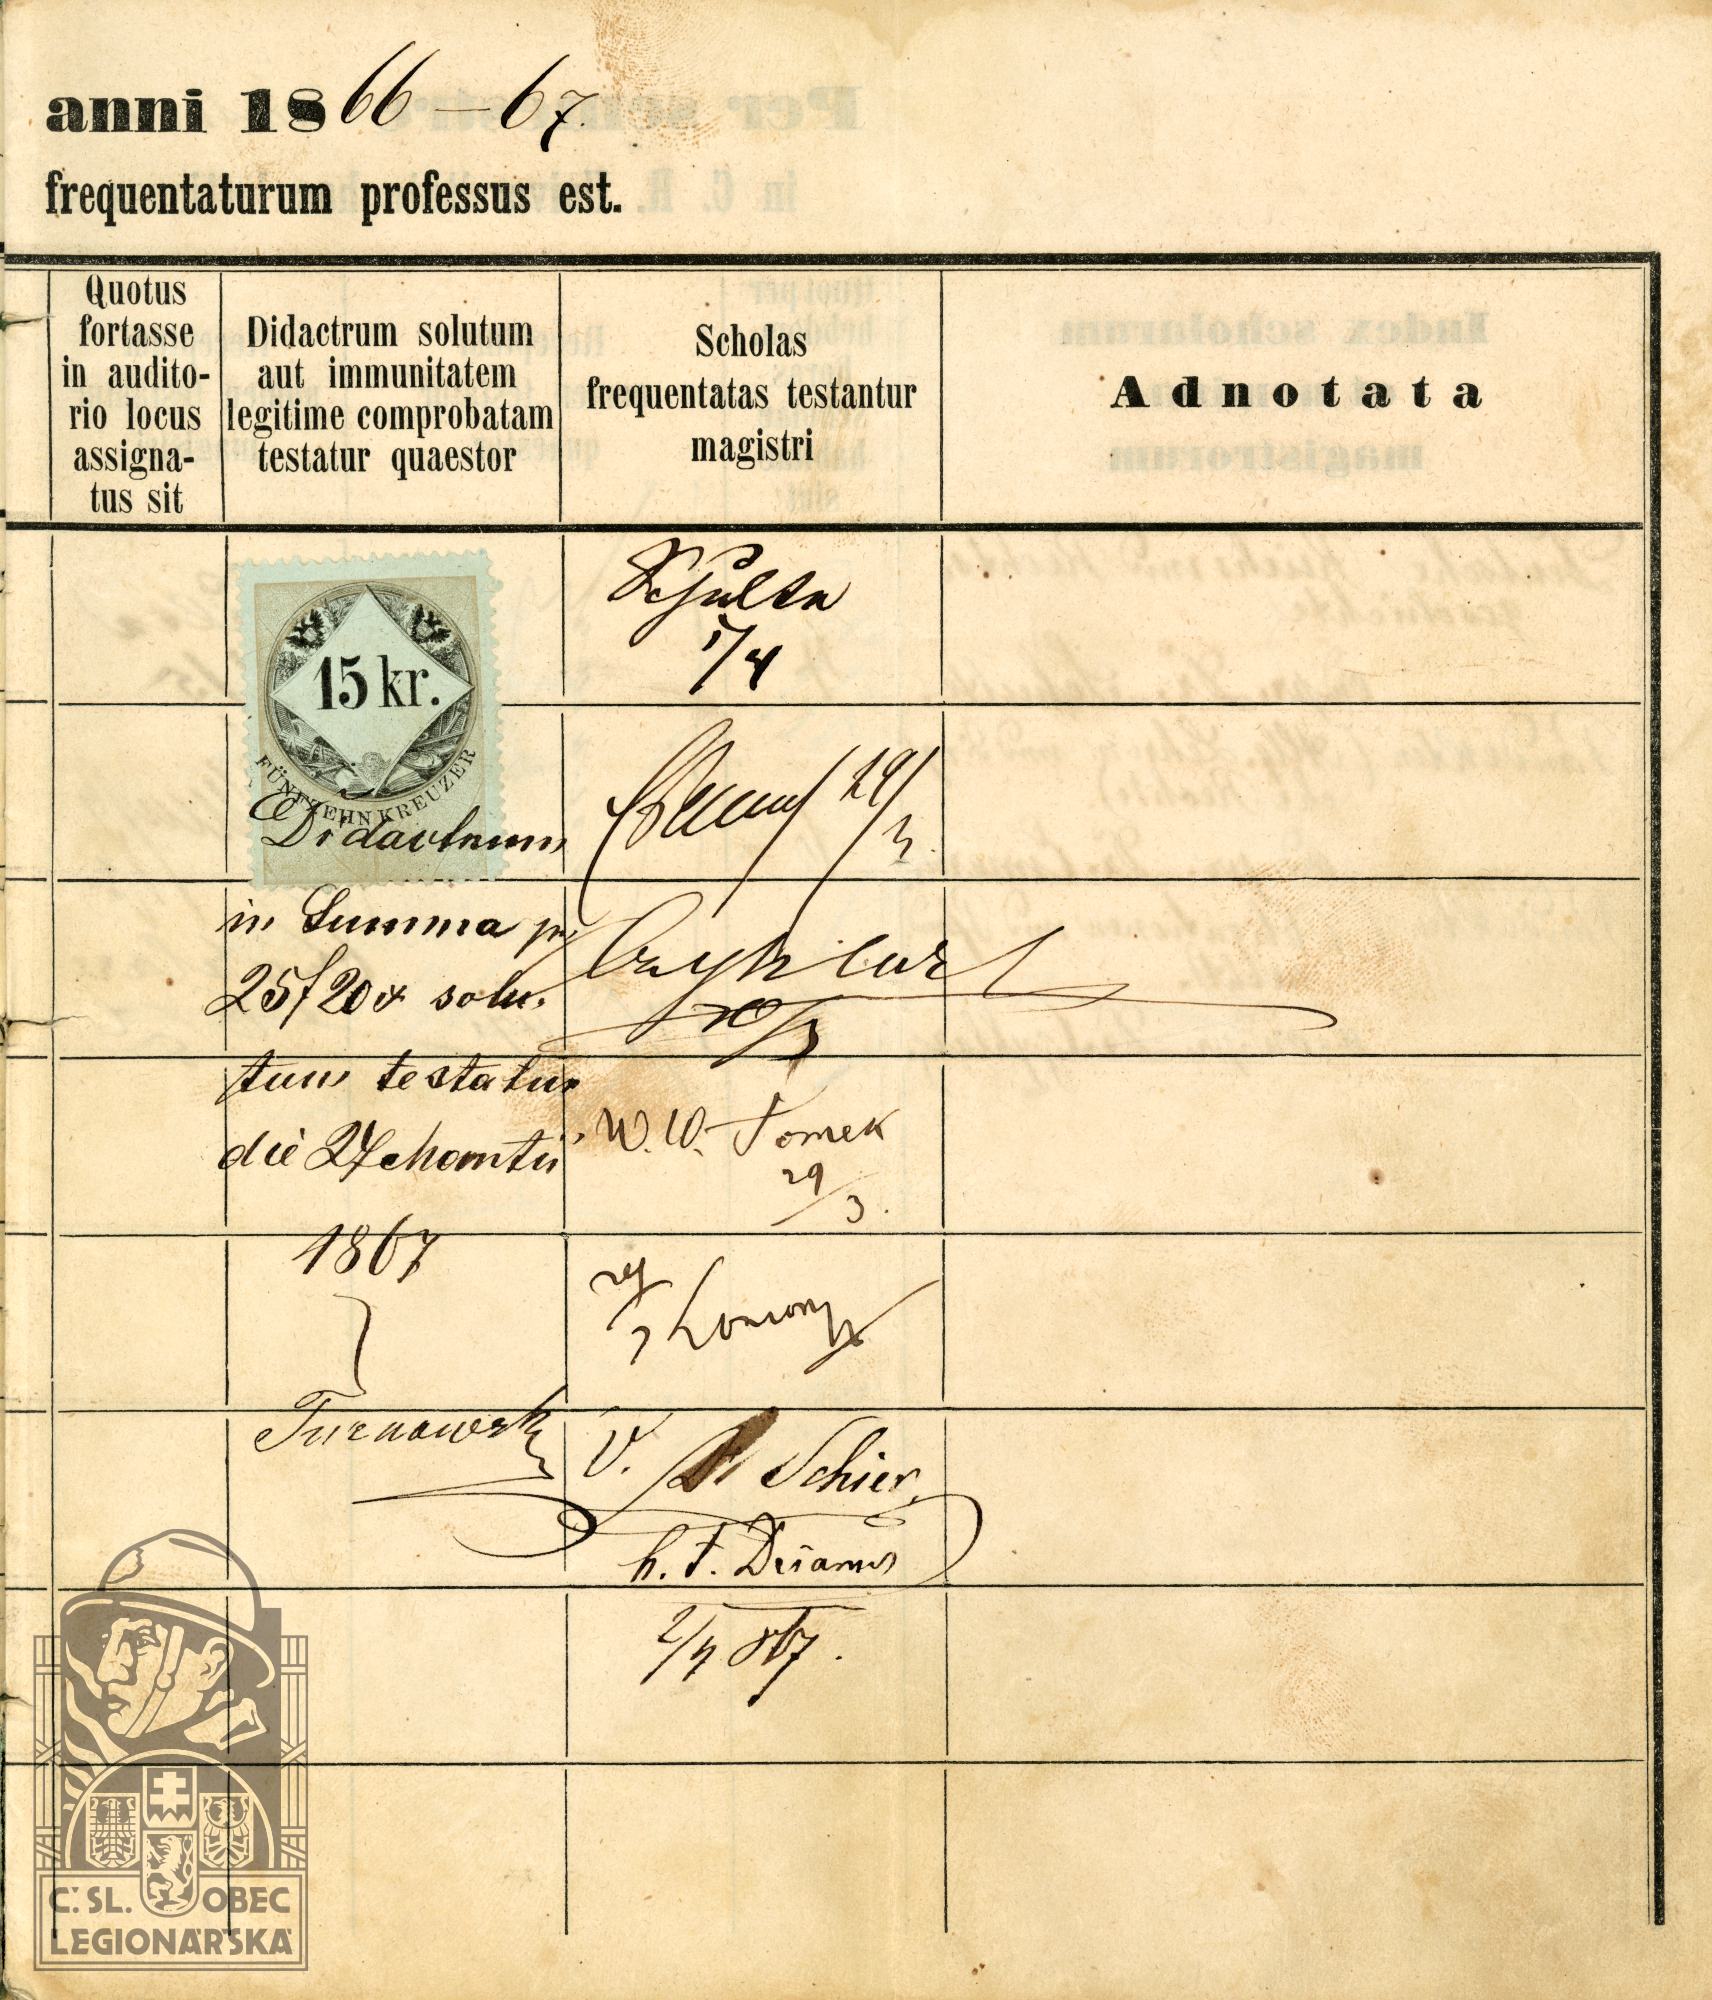 anni 1866-67.
frequentaturum professus est.
Quotus
fortasse
in audito-
rio locus
assigna-
tus sit
Didactrum solutum
aut immunitatem
legitime comprobatam
testatur quaestor
Scholas
frequentatas testantur
magistri
Adnotata
15 kr.
FÜNFZEHN KREUZER
Didactrum
in Summa pr
25f 20x solu-
tum testatur
die 24 Martii
1867
Schulte
1/4
29/3.
30/3
W. W. Tomek
29/3.
V. Dr Schier
h. t. Decanus
2/4 867.
Č. SL. OBEC
LEGIONÁŘSKÁ